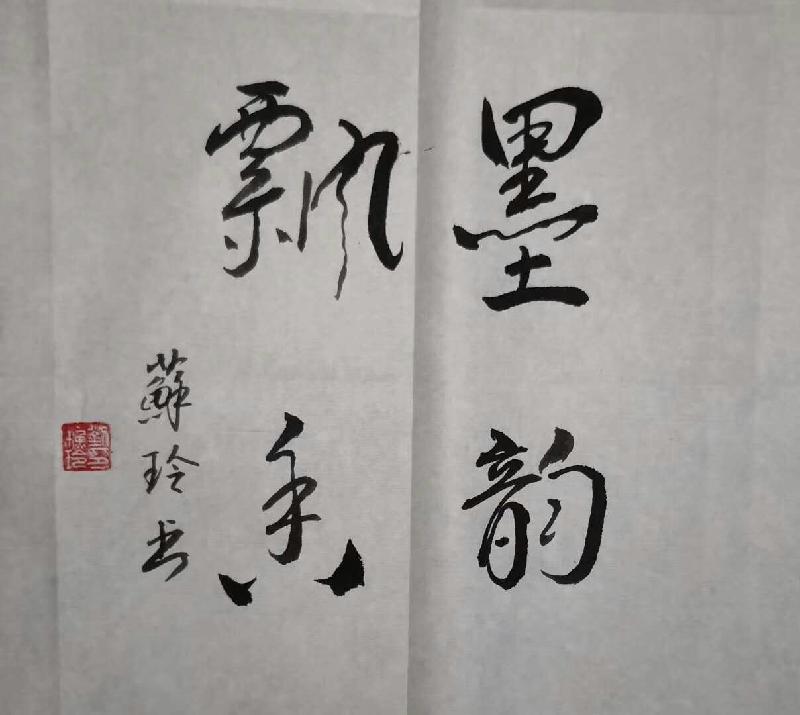 墨韵
飘香
蘇玲书